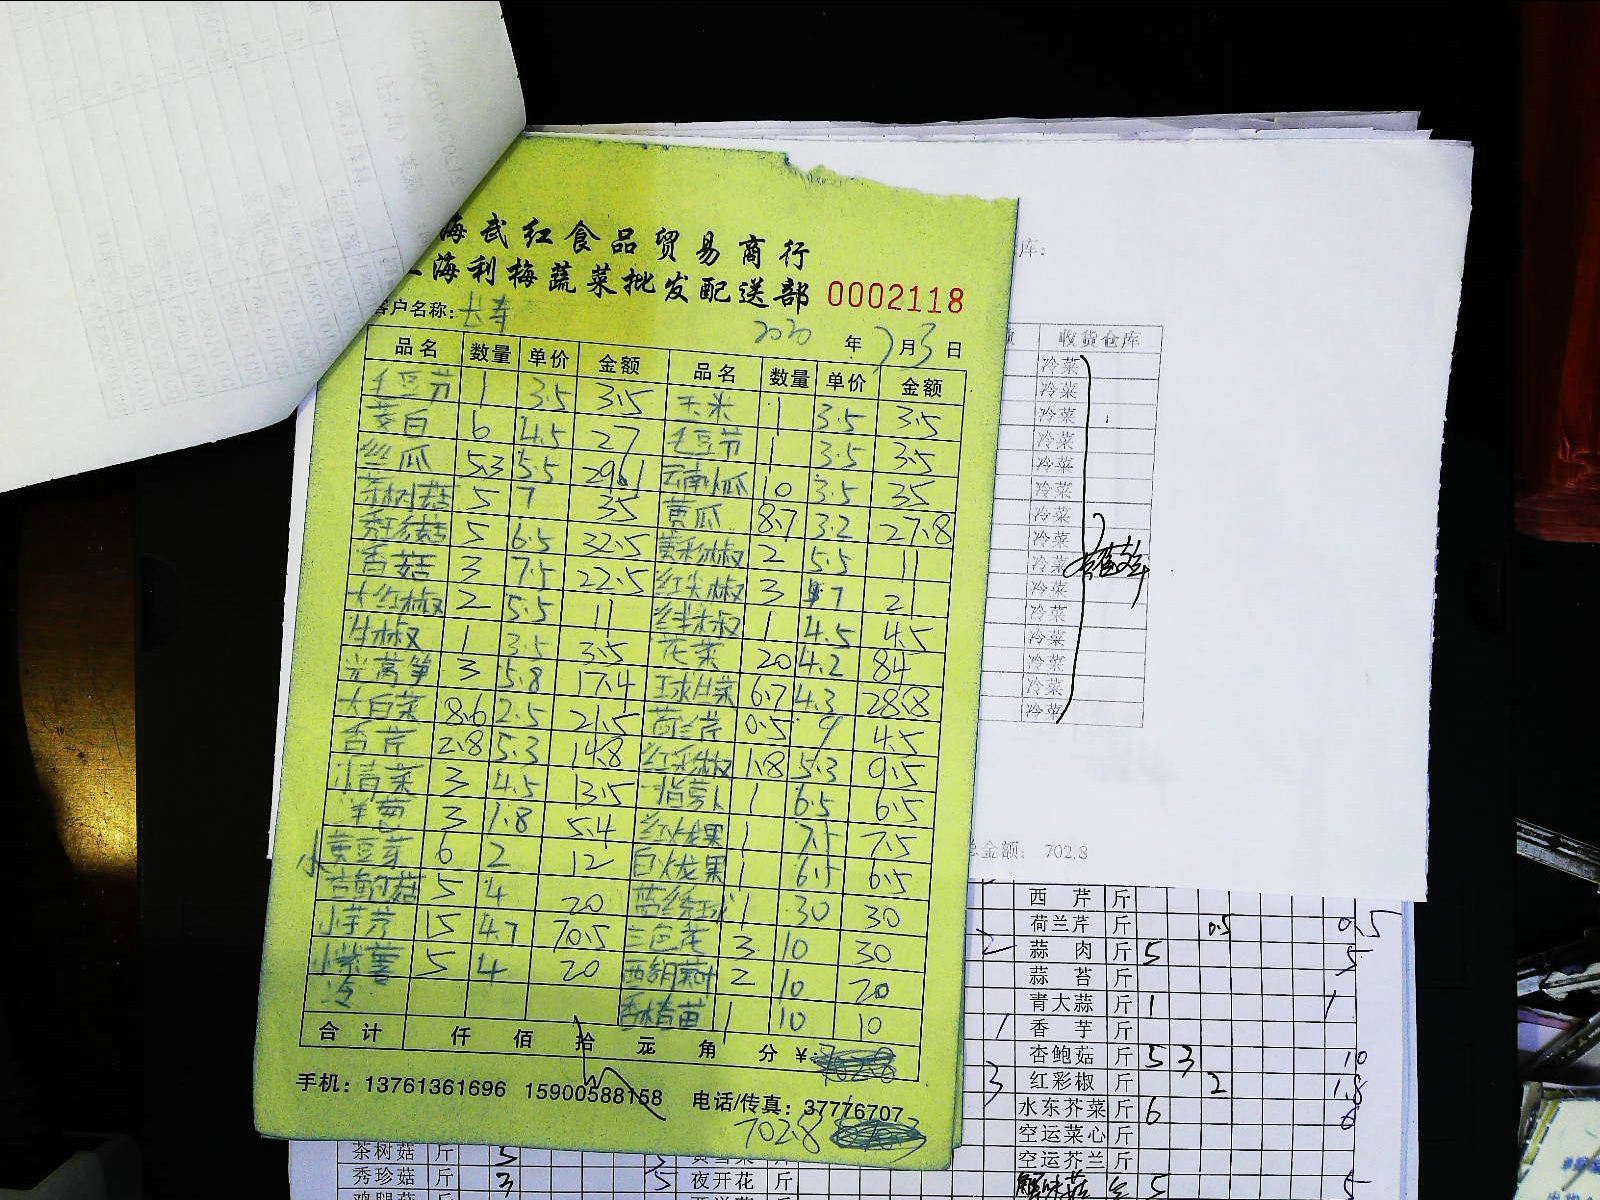 海武红食品贸易商行
海利梅蔬菜批发配送部 0002118
客户名称: 长寿
2020 年 7 月 3 日
品名 数量 单价 金额 品名 数量 单价 金额
毛豆节 1 3.5 3.5 玉米 1 3.5 3.5
茭白 6 4.5 27 毛豆节 1 3.5 3.5
丝瓜 5.3 5.5 29.1 云南小瓜 10 3.5 35
茶树菇 5 7 35 黄瓜 8.7 3.2 27.8
秀珍菇 5 6.5 32.5 黄彩椒 2 5.5 11
香菇 3 7.5 22.5 红尖椒 3 7 21
大红椒 2 5.5 11 椒 1 4.5 4.5
牛椒 1 3.5 3.5 花菜 20 4.2 84
光莴笋 3 5.8 17.4 球生菜 6.7 4.3 28.8
大白菜 8.6 2.5 21.5 荷兰芹 0.5 9 4.5
香芹 2.8 5.3 14.8 红彩椒 1.8 5.3 9.5
小青菜 3 4.5 13.5 萝卜 1 6.5 6.5
洋葱 3 1.8 5.4 红火龙果 1 7.5 7.5
小黄豆芽 6 2 12 白火龙果 1 6.5 6.5
杏鲍菇 5 4 20 蓝绣球 1 30 30
小芋艿 15 4.7 70.5 三色花 3 10 30
小紫薯 5 4 20 西胡菜叶 2 10 20
冷 香椿苗 1 10 10
合计 仟 佰 拾 元 角 分 ¥:
手机: 13761361696 15900588158 电话/传真: 37776707
702.8
库:
收货仓库
冷菜
冷菜
冷菜
冷菜
冷菜
冷菜
冷菜
冷菜
冷菜
冷菜
冷菜
冷菜
冷菜
冷菜
冷菜
总金额: 702.8
西芹 斤
荷兰芹 斤 0.5 0.5
2 蒜肉 斤 5 5
蒜苔 斤
青大蒜 斤 1 1
1 香芋 斤
杏鲍菇 斤 5 3 10
3 红彩椒 斤 2 1.8
水东芥菜 斤 6 6
空运菜心 斤
空运芥兰 斤
茶树菇 斤 5 5
秀珍菇 斤 3 5 夜开花 斤 5 5